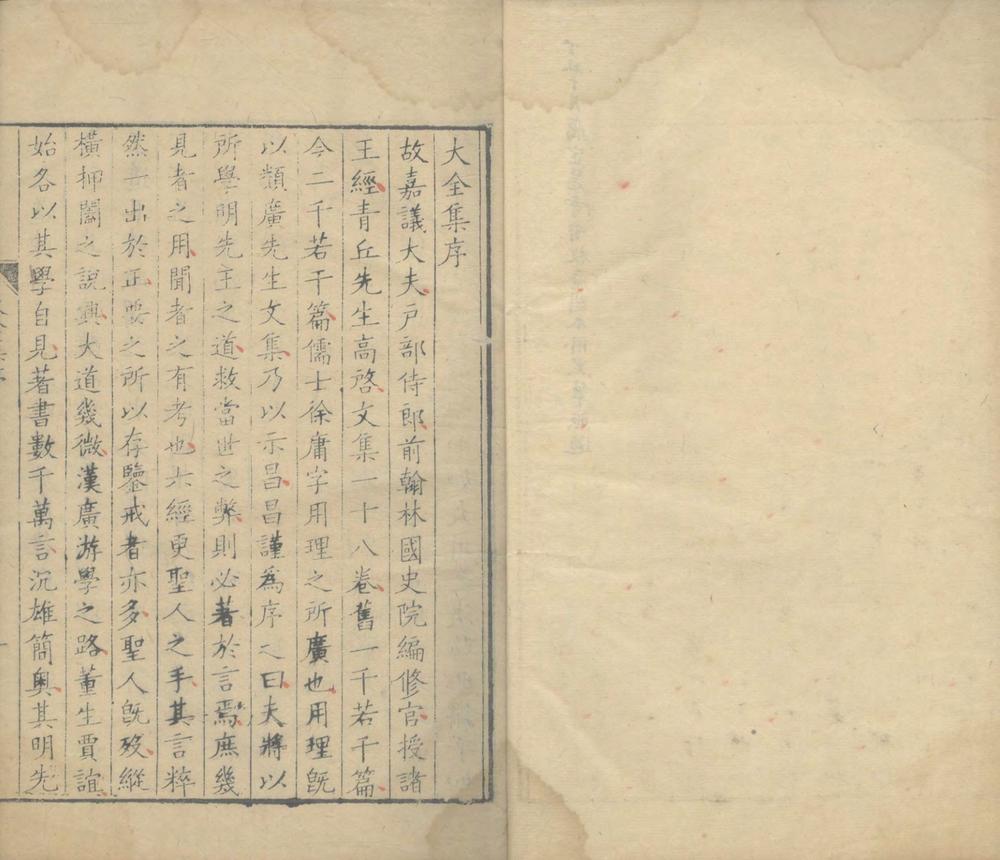 大全集序
故嘉議大夫戶部侍郎前翰林國史院編修官授諸
王經青丘先生高啓文集一十八卷舊一千若干篇
今二千若干篇儒士徐庸字用理之所廣也用理旣
以類廣先生文集乃以示昌昌謹爲序之曰夫將以
所學明先王之道救當世之弊則必著於言焉庶幾
見者之用聞者之有考也六經更聖人之手其言粹
然一出於正要之所以存鑒戒者亦多聖人旣歿縱
橫押闔之說興大道幾微漢廣游學之路董生賈誼
始各以其學自見著書數千萬言沉雄簡奧其明先